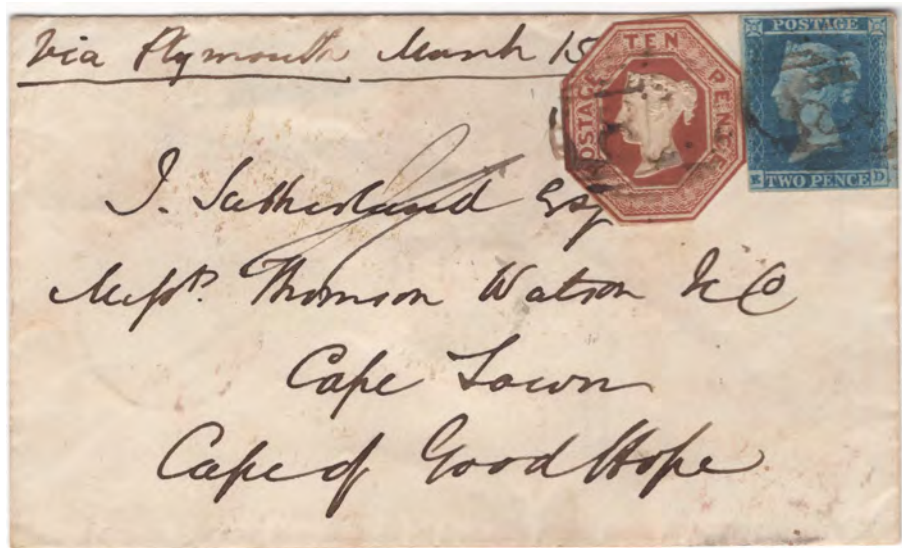 via Plymouth March 15
POSTAGE TEN PENCE
POSTAGE
TWO PENCE D
J. Sutherland Esq
Messrs. Thomson Watson & Co
Cape Town
Cape of Good Hope